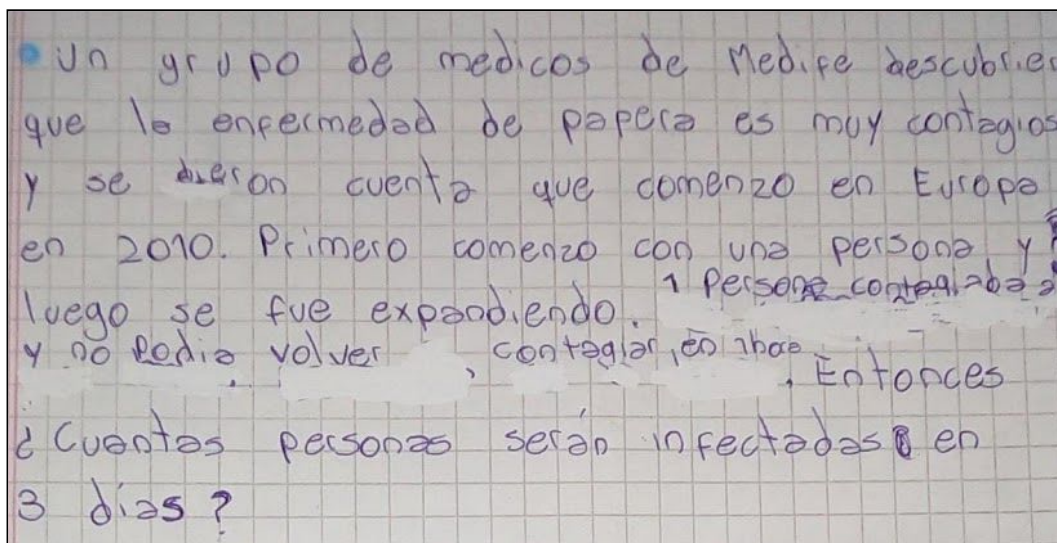 Un grupo de medicos de Medife descubrier
que la enfermedad de papera es muy contagios
y se dieron cuenta que comenzo en Europa
en 2010. Primero comenzo con una persona y
luego se fue expandiendo. 1 persona contagiaba a
y no podia volver contagiar, en 1 hora
. Entonces
¿Cuantas personas serán infectadas en
3 dias?